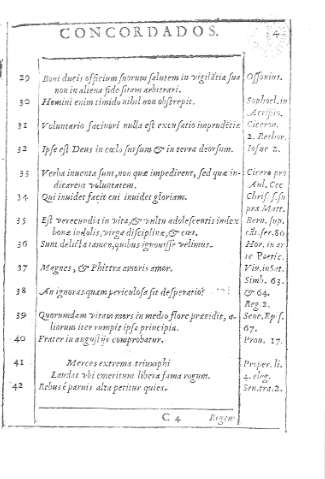 CONCORDADOS.
29 Boni ducis officium suorum salutem in vigilãtia sua Ossonius.
non in aliena fide sitam arbitrari.
30 Homini enim timido nihil non obstrepit. Sophocl. in
31 Voluntario facinori nulla est excusatio imprudẽtiæ Cicero.
2. Rethor.
32 Ipse est Deus in cœlo sursum & in terra deorsum. Iosue 2.
33 Verba inuenta sunt, non quæ impedirent, sed quæ in- Cicero pro
dicarent voluntatem. Aul. Cec
34 Qui inuidet facit cui inuidet gloriam. Chris. s. su
pra Matt.
35 Est verecundia in vita, & vultu adolescentis index Bern. sup.
bonæ indolis, virga disciplinæ, & cæt. cãt. ser. 86
36 Sunt delicta tamen, quibus ignouisse velimus. Hor. in ar
te Poetic.
37 Magnes, & Philtra amoris amor. Viu. in Sat.
Simb. 63.
38 An ignoras quam periculosa sit desperatio? & 64.
Reg. 2.
39 Quorumdam vitam mors in medio flore præcidit, a- Sene. Ep. s.
liorum iter rumpit ipse principia. 67.
40 Frater in angustijs comprobatur. Prou. 17.
41 Merces extrema triumphi Proper. li.
Laudat vbi emeritum libera fama rogum. 4. eleg.
42 Rebus è paruis alta petitur quies. Sen. tra. 2.
C 4 Regem